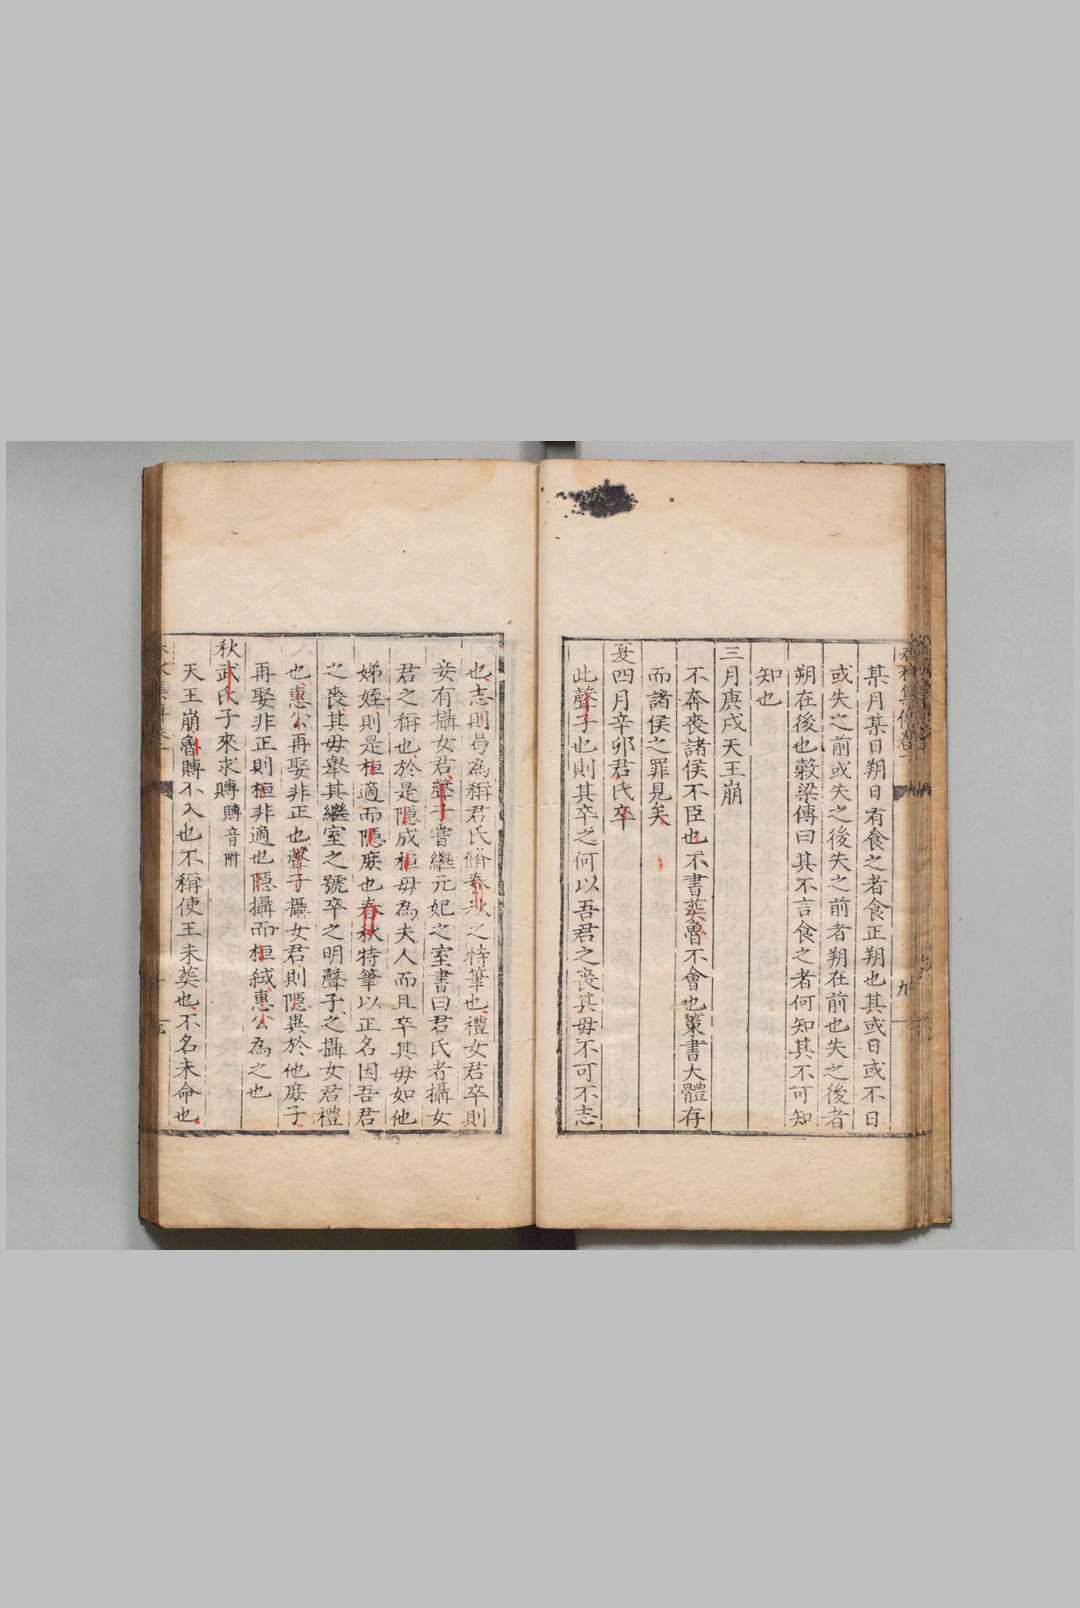 某月某日朔日有食之者食正朔也其或日或不日
或失之前或失之後失之前者朔在前也失之後者
朔在後也穀梁傳曰其不言食之者何知其不可知
知也
三月庚戌天王崩
不奔喪諸侯不臣也不書葬魯不會也策書大體存
而諸侯之罪見矣
夏四月辛卯君氏卒
此聲子也則其卒之何以吾君之喪其母不可不志
也志則曷為稱君氏脩春秋之特筆也禮女君卒則
妾有攝女君聲子嘗繼元妃之室書曰君氏者攝女
君之稱也於是隱成桓母為夫人而且卒其母如他
娣姪則是桓適而隱庶也春秋特筆以正名因吾君
之喪其母舉其繼室之號卒之明聲子之攝女君禮
也惠公再娶非正也聲子攝女君則隱異於他庶子
再娶非正則桓非適也隱攝而桓弒惠公為之也
秋武氏子來求賻賻音附
天王崩魯賻不入也不稱使王未葬也不名未命也